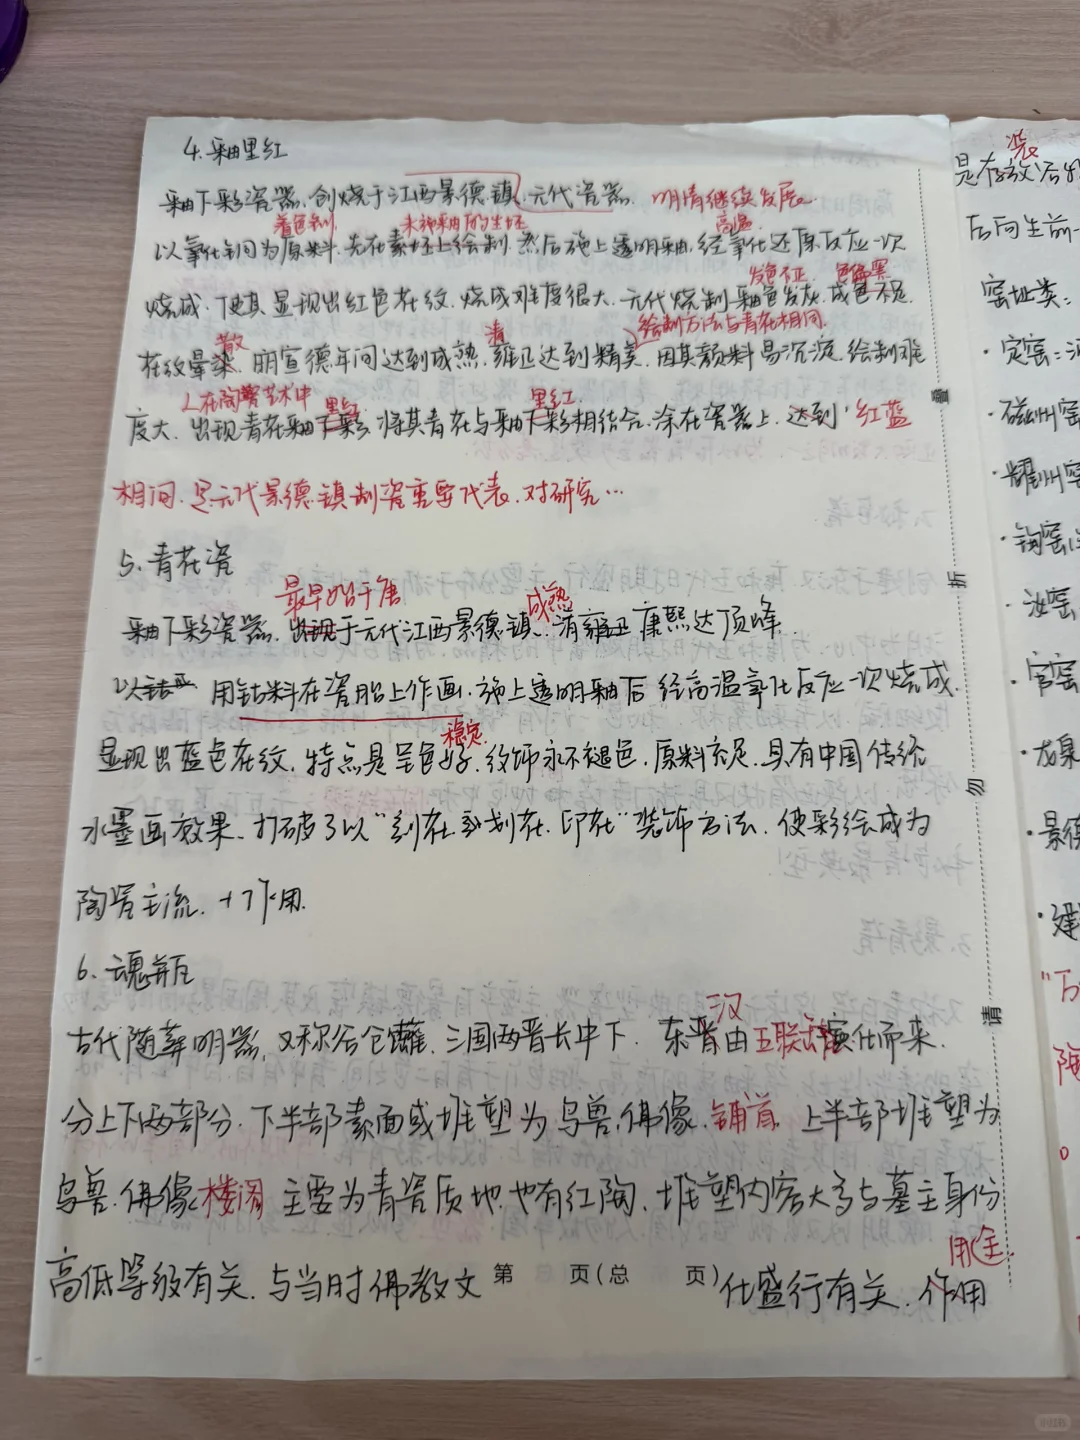 4. 釉里红
釉下彩瓷器，创烧于江西景德镇，元代瓷器. 明清继续发展.
着色剂 未施釉的生坯 高温
以氧化铜为原料，先在素坯上绘制，然后施上透明釉，经氧化还原反应一次
发色不正，色偏黑
烧成，使其显现出红色花纹，烧成难度很大，元代烧制釉色发灰，成色不足，
散 清 绘制方法与青花相同.
花纹晕染，明宣德年间达到成熟，雍正达到精美，因其颜料易沉淀，绘制难
在陶瓷艺术中 里红 里红.
度大，出现青花釉下彩，将其青花与釉下彩相结合，涂在瓷器上，达到“红蓝
相间，是元代景德镇制瓷重要代表，对研究…
5. 青花瓷
最早始于唐 成熟
釉下彩瓷器，出现于元代江西景德镇，清雍正康熙达顶峰.
用钴料在瓷胎上作画，施上透明釉后经高温氧化反应一次烧成.
稳定
显现出蓝色花纹，特点是呈色好，纹饰永不褪色，原料充足，具有中国传统
水墨画效果，打破了以“刻花、划花、印花”装饰方法，使彩绘成为
陶瓷主流，+作用.
6. 魂瓶
汉
古代随葬明器，又称谷仓罐，三国两晋长中下. 东晋由五联罐演化而来.
分上下两部分，下半部素面或堆塑为鸟兽，佛像，铺首，上半部堆塑为
鸟兽，佛像，楼阁 主要为青瓷质地，也有红陶，堆塑内容大多与墓主身份
用途.
高低等级有关，与当时佛教文 第 页（总 页） 化盛行有关，作用
叠
折
勿
请
装
是存放后
后向生前
窑址类：
·定窑：
·磁州窑
·耀州窑
·钧窑
·汝窑
·官窑
·龙泉
·景德
·建
陶